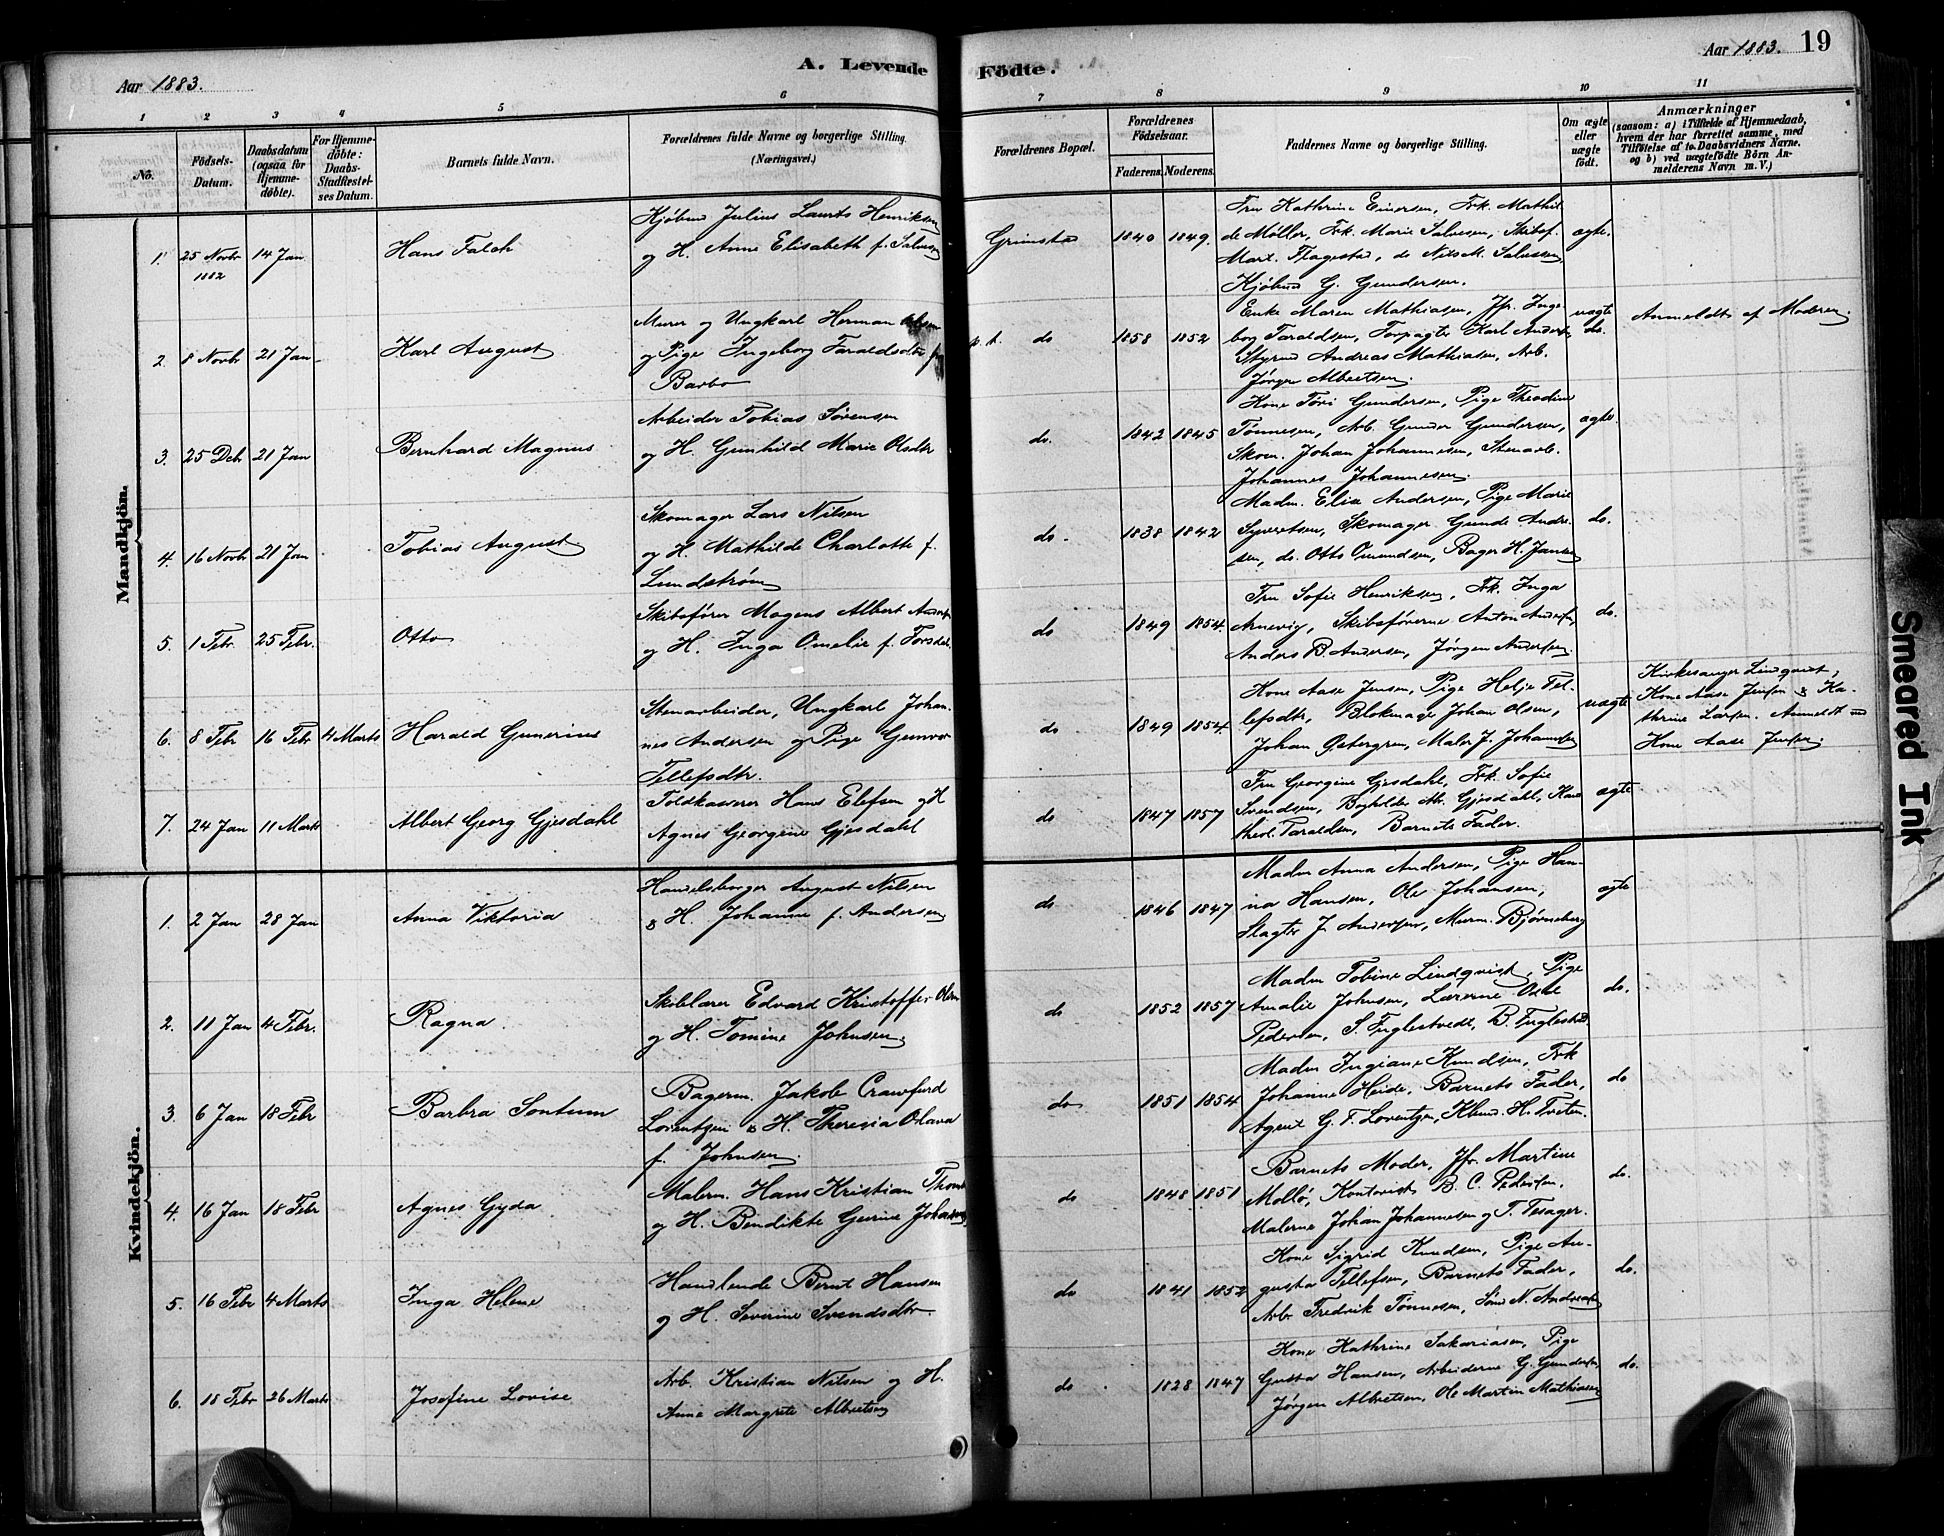 Aar 1883.
A. Levende Födte.
Aar 1883. 19
1 2 3 4 5 6 7 8 9 10 11
No.
Födsels-
Datum.
Daabsdatum
(ogsaa for
Hjemme-
döbte).
For Hjemme-
döbte:
Daabs-
Stadfæstel-
ses Datum.
Barnets fulde Navn.
Forældrenes fulde Navne og borgerlige Stilling.
(Næringsvei.)
Forældrenes Bopæl.
Forældrenes
Födselsaar.
Faderens. Moderens.
Faddernes Navne og borgerlige Stilling.
Om ægte
eller
uægte
födt.
Anmærkninger
(saasom: a) i Tilfælde af Hjemmedaab,
hvem der har forrettet samme, med
Tilföielse af to Daabsvidners Navne,
og b) ved uægtefödte Börn An-
melderens Navn m. V.)
Mandkjön.
1. 25 Novbr 1882 14 Jan Hans Falch
Kjøbmd Julius Laurits Henriksen
og H. Anne Elisabeth f. Salvesen
Grimstad 1840 1849.
Fru Kathrine Einersen, Frk. Mathil-
de Møller, Frk. Marie Salvesen, Skibsf.
Mart. Flagestad, do Nils M. Salvesen,
Kjøbmd G. Gundersen.
ægte.
2. 8 Novbr 21 Jan Karl August
Murer og Ungkarl Herman
og Pige Ingeborg Taraldsdtr
Barbo
p. t. do 1858 1852
Enke Maren Mathiasen, Jfr. Inge-
borg Taraldsen, Forpagter Karl Anders.
Styrmd Andreas Mathiasen, Arb.
Jørgen Albretsen.
uægte
do.
Anmeldt af Moderen.
3. 25 Deb 21 Jan Bernhard Magnus
Arbeider Tobias Sørensen
og H. Gunhild Marie Olsdtr
do. 1842 1845
Kone Tori Gundersen, Pige Theodine
Tønnesen, Arb. Gunder Gundersen,
Skom. Johan Johannesen, Stenarb.
Johannes Johannesen.
ægte.
4. 16 Novbr 21 Jan Tobias August
Skomager Lars Nilsen
og H. Mathilde Charlotte f.
Lundstrøm
do. 1838 1842
Madm. Elise Andersen, Pige Marie
Syvertsen, Skomager Gunde Andre-
sen, do. Otto Omundsen, Bager H. Jansen
do.
5. 1 Febr. 25 Febr. Otto
Skibsfører Mogens Albert Andersen
og H. Inga Omelie f. Torsdal.
do 1849 1854.
Fru Sofie Henriksen, Frk. Inga
Arnevig, Skibsførerne Anton Andersen,
Anders B. Andersen, Jørgen Andersen.
do.
6. 8 Febr 16 Febr 4 Marts Harald Gunerius
Stenarbeider, Ungkarl Johan-
nes Andersen og Pige Gunvor
Tellefsdtr.
do 1849 1854.
Kone Aase Jensen, Pige Helje Tel-
lefsdtr, Blokmager Johan Olsen,
Johan Østergren, Maler J. Johannesen
uægte
Kirkesanger Lindqvist,
Kone Aase Jensen & Ka-
thrine Larsen. Anmeldt ved
Kone Aase Jensen.
7. 24 Jan 11 Marts Albert Georg Gjesdahl
Toldkasserer Hans Elefsen og H
Agnes Georgine Gjesdahl
do 1847 1857
Fru Georgine Gjesdahl, Frk. Sofie
Svendsen, Bogholder Gjesdahl, Kand
theol. Taraldsen, Barnets Fader.
ægte
Kvindekjön.
1. 2 Jan 28 Jan Anna Viktoria
Handelsborger August Nilsen
& H. Johanne f. Andersen
do 1846 1847
Madm Anna Andersen, Pige Han-
na Hansen, Ole Johansen,
Slagter J. Andersen, Murm. Bjørneberg
ægte
2. 11 Jan 4 Febr. Ragna.
Skiblærer Edvard Kristoffer Olsen
og H. Tomine Johnsen
do 1852 1857
Madm Tobine Lindqvist, Pige
Amalie Johnsen, Lærerne
Pedersen, S. Fuglestvedt, B. Fuglestvedt.
do.
3 6 Jan 18 Febr Barbra Sontum
Bagerm. Jakob Crawfurd
Lorentzen & H. Theresia Olava
f. Johnsen.
do 1851 1854
Madm Ingiane Knudsen, Frk
Johanne Heide, Barnets Fader,
Agent G. F. Lorentzen, H. Tveten
do
4. 16 Jan 18 Febr Agnes Gyda
Malerm. Hans Kristian
og H. Bendikte Gurine Johansen
do 1848 1851
Barnets Moder, Jfr. Martine
Mollø, Kontorist B. C. Pedersen,
Malerne Johan Johannesen og T. Tesager.
do.
5. 16 Febr 4 Marts Inga Helene
Handlende Bernt Hansen
og H. Severine Svendsdtr.
do 1841 1852
Kone Sigrid Knudsen, Pige Au-
gusta Tellefsen, Barnets Fader,
Arb Fredrik Tønnesen, Sømd N. Andreasen
do.
6. 18 Febr 26 Marts Josefine Lovise
Arb. Kristian Nilsen og H.
Anne Margrete Albretsen
do 1828 1847
Kone Kathrine Sakariasen, Pige
Gusta Hansen, Arbeiderne G. Gundersen,
Jørgen Albretsen, Ole Martin Mathiasen
do.
Smeared Ink